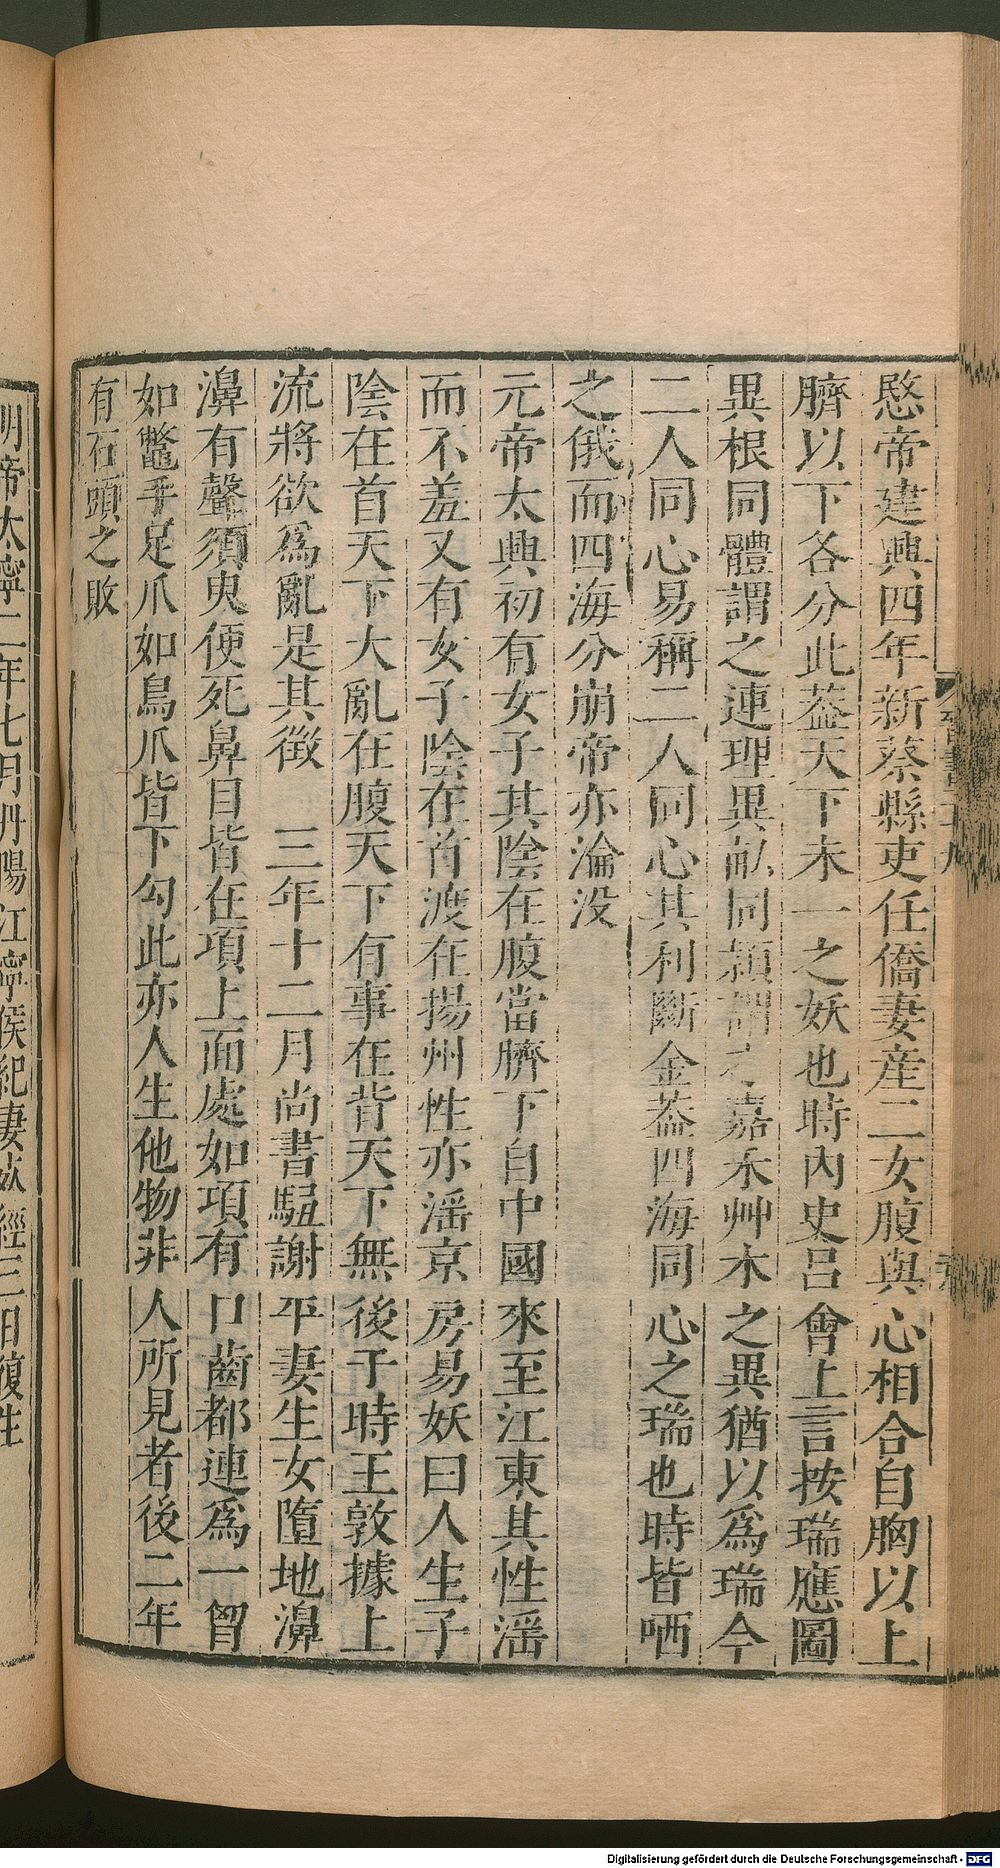 愍帝建興四年新蔡縣吏任僑妻産二女腹與心相合自胸以上
臍以下各分此葢天下未一之妖也時內史呂會上言按瑞應圖
異根同體謂之連理異畝同穎謂之嘉禾艸木之異猶以爲瑞今
二人同心易稱二人同心其利斷金葢四海同心之瑞也時皆哂
之俄而四海分崩帝亦淪没
元帝太興初有女子其陰在腹當臍下自中國來至江東其性滛
而不羞又有女子陰在首渡在揚州性亦滛京房易妖曰人生子
陰在首天下大亂在腹天下有事在背天下無後于時王敦據上
流將欲爲亂是其徵　三年十二月尚書騶謝平妻生女墮地濞
濞有聲須臾便死鼻目皆在項上面處如項有口齒都連爲一胷
如鼈手足爪如鳥爪皆下勾此亦人生他物非人所見者後二年
有石頭之敗
明帝太寧二年七月丹陽江寧侯紀妻死經三日復生
Digitalisierung gefördert durch die Deutsche Forschungsgemeinschaft - DFG